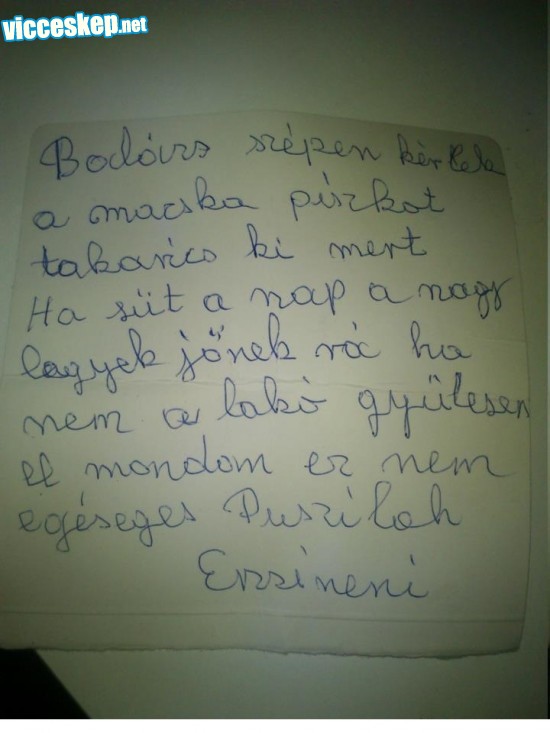 vicceskep.net
Bodóirs szépen kérlek
a macska piszkot
takarics ki mert
Ha süt a nap a nagy
legyek jőnek rá ha
nem a lakó gyülesen
el mondom ez nem
egéseges Puszilak
Erzsineni